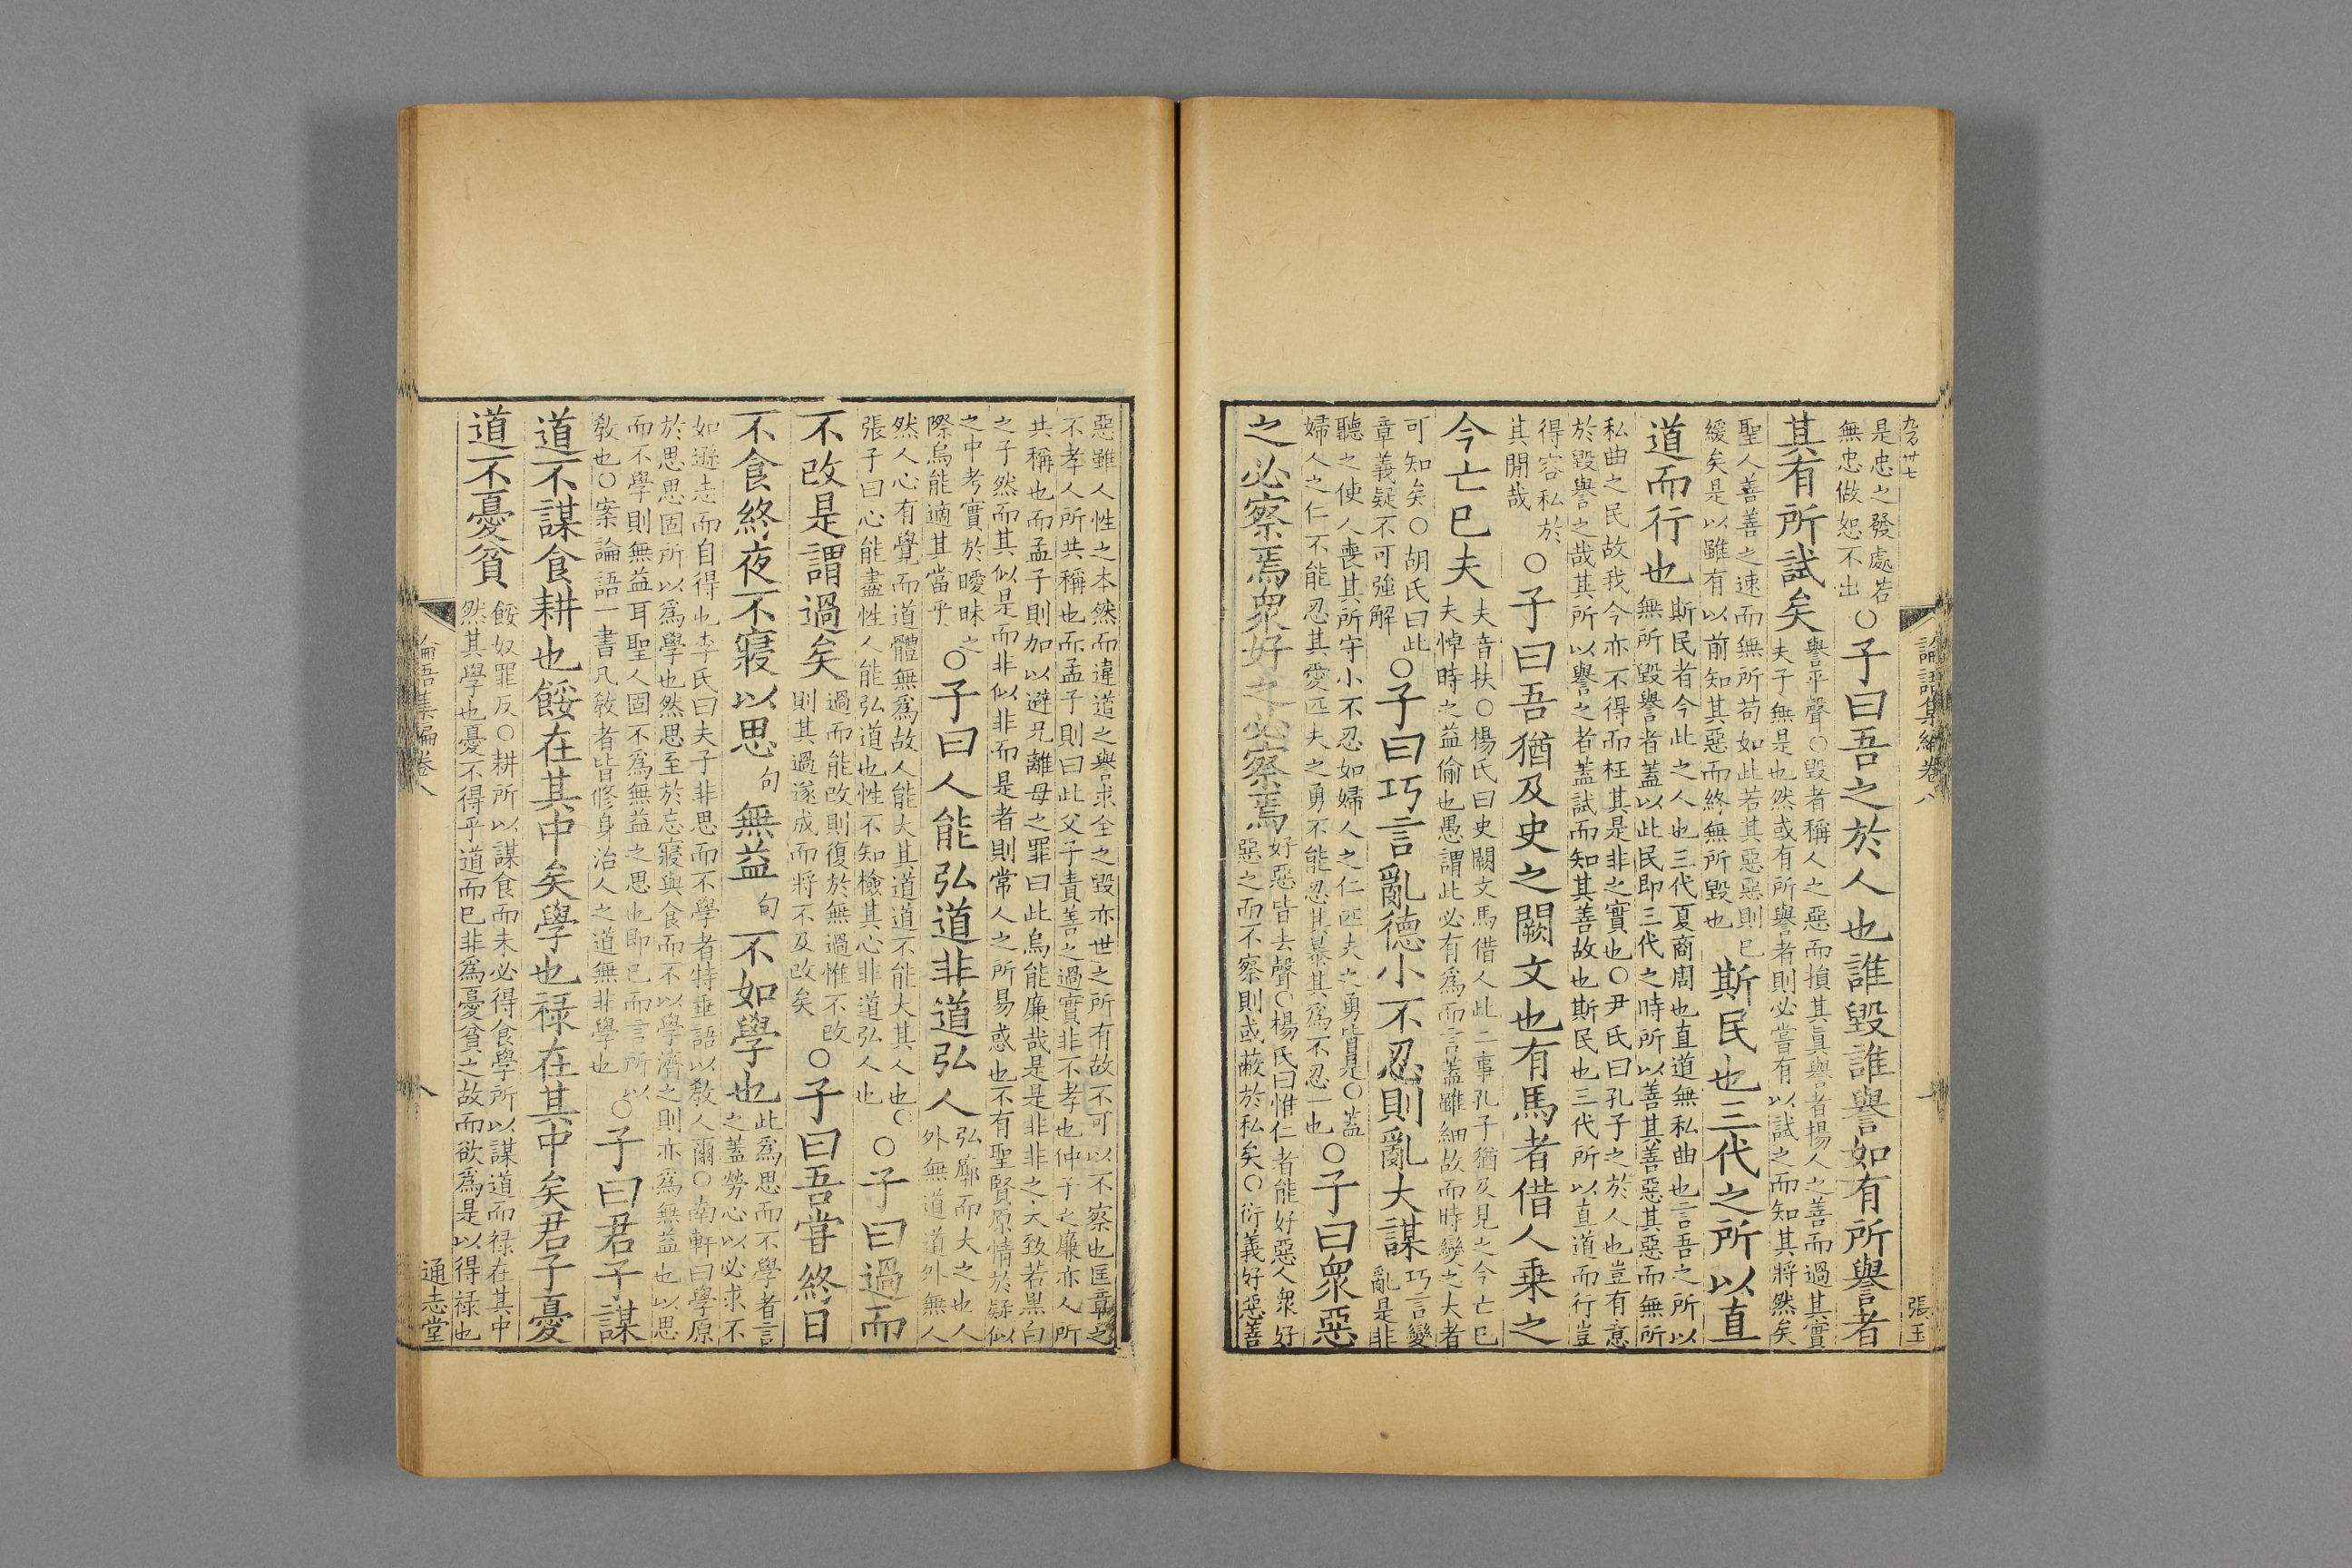 論語集編卷八
張玉
是忠之發處若
無忠做恕不出
○子曰吾之於人也誰毀誰譽如有所譽者
其有所試矣
譽平聲○毀者稱人之惡而損其眞譽者揚人之善而過其實
夫子無是也然或有所譽者則必嘗有以試之而知其將然矣
聖人善善之速而無所苟如此若其惡惡則已
緩矣是以雖有以前知其惡而終無所毀也
斯民也三代之所以直
道而行也
斯民者今此之人也三代夏商周也直道無私曲也言吾之所以
無所毀譽者蓋以此民即三代之時所以善其善惡其惡而無所
私曲之民故我今亦不得而枉其是非之實也○尹氏曰孔子之於人也豈有意
於毀譽之哉其所以譽之者蓋試而知其善故也斯民也三代所以直道而行豈
得容私於
其閒哉
○子曰吾猶及史之闕文也有馬者借人乘之
今亡巳夫
夫音扶○楊氏曰史闕文馬借人此二事孔子猶及見之今亡巳
夫悼時之益偷也愚謂此必有爲而言蓋雖細故而時變之大者
可知矣○胡氏曰此
章義疑不可強解
○子曰巧言亂德小不忍則亂大謀
巧言變
亂是非
聽之使人喪其所守小不忍如婦人之仁匹夫之勇皆是○蓋
婦人之仁不能忍其愛匹夫之勇不能忍其暴其爲不忍一也
○子曰衆惡
之必察焉衆好之必察焉
好惡皆去聲○楊氏曰惟仁者能好惡人衆好
惡之而不察則或蔽於私矣○衍義好惡善
惡雖人性之本然而違道之譽求全之毀亦世之所有故不可以不察也匡章之
不孝人所共稱也而孟子則曰此父子責善之過實非不孝也仲子之廉亦人所
共稱也而孟子則加以避兄離母之罪曰此烏能廉哉是是非非之大致若黒白
之子然而其似是而非似非而是者則常人之所易惑也不有聖賢原情於疑似
之中考實於曖昧之
際烏能適其當乎
○子曰人能弘道非道弘人
弘廓而大之也人
外無道道外無人
然人心有覺而道體無爲故人能大其道道不能大其人也○
張子曰心能盡性人能弘道也性不知檢其心非道弘人也
○子曰過而
不改是謂過矣
過而能改則復於無過惟不改
則其過遂成而將不及改矣
○子曰吾嘗終日
不食終夜不寢以思句無益句不如學也
此爲思而不學者言
之蓋勞心以必求不
如遜志而自得也李氏曰夫子非思而不學者特垂語以敎人爾○南軒曰學原
於思思固所以爲學也然思至於忘寢與食而不以學濟之則亦爲無益也以思
而不學則無益耳聖人固不爲無益之思也即已而言所以
敎也○案論語一書凡敎者皆修身治人之道無非學也
○子曰君子謀
道不謀食耕也餒在其中矣學也祿在其中矣君子憂
道不憂貧
餒奴罪反○耕所以謀食而未必得食學所以謀道而祿在其中
然其學也憂不得乎道而已非爲憂貧之故而欲爲是以得祿也
論語集編卷八
八
通志堂